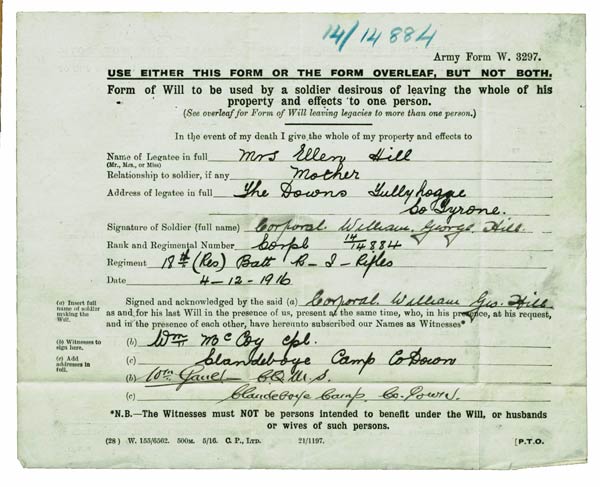 14/14884
Army Form W. 3297.
USE EITHER THIS FORM OR THE FORM OVERLEAF, BUT NOT BOTH.
Form of Will to be used by a soldier desirous of leaving the whole of his
property and effects to one person.
(See overleaf for Form of Will leaving legacies to more than one person.)
In the event of my death I give the whole of my property and effects to
Name of Legatee in full Mrs Ellen Hill
(Mr., Mrs., or Miss)
Relationship to soldier, if any Mother
Address of legatee in full The Downs Tullyhogge
Co Tyrone.
Signature of Soldier (full name) Corporal. William George Hill.
Rank and Regimental Number Corpl 14/14884
Regiment 18th (Res) Batt R-I-Rifles
Date 4-12-1916
(a) Insert full name of soldier making the Will.
Signed and acknowledged by the said (a) Corporal. William Geo. Hill
as and for his last Will in the presence of us, present at the same time, who, in his presence, at his request,
and in the presence of each other, have hereunto subscribed our Names as Witnesses*
(b) Witnesses to sign here.
(b) Wm McCoy cpl.
(c) Add addresses in full.
(c) Clandeboye Camp Co Down
(b) Wm C.Q.M.S.
(c) Clandeboye Camp, Co. Down.
*N.B.—The Witnesses must NOT be persons intended to benefit under the Will, or husbands
or wives of such persons.
(28) W. 155/6562. 500M. 5/16. C. P., LTD. 21/1197. [P.T.O.